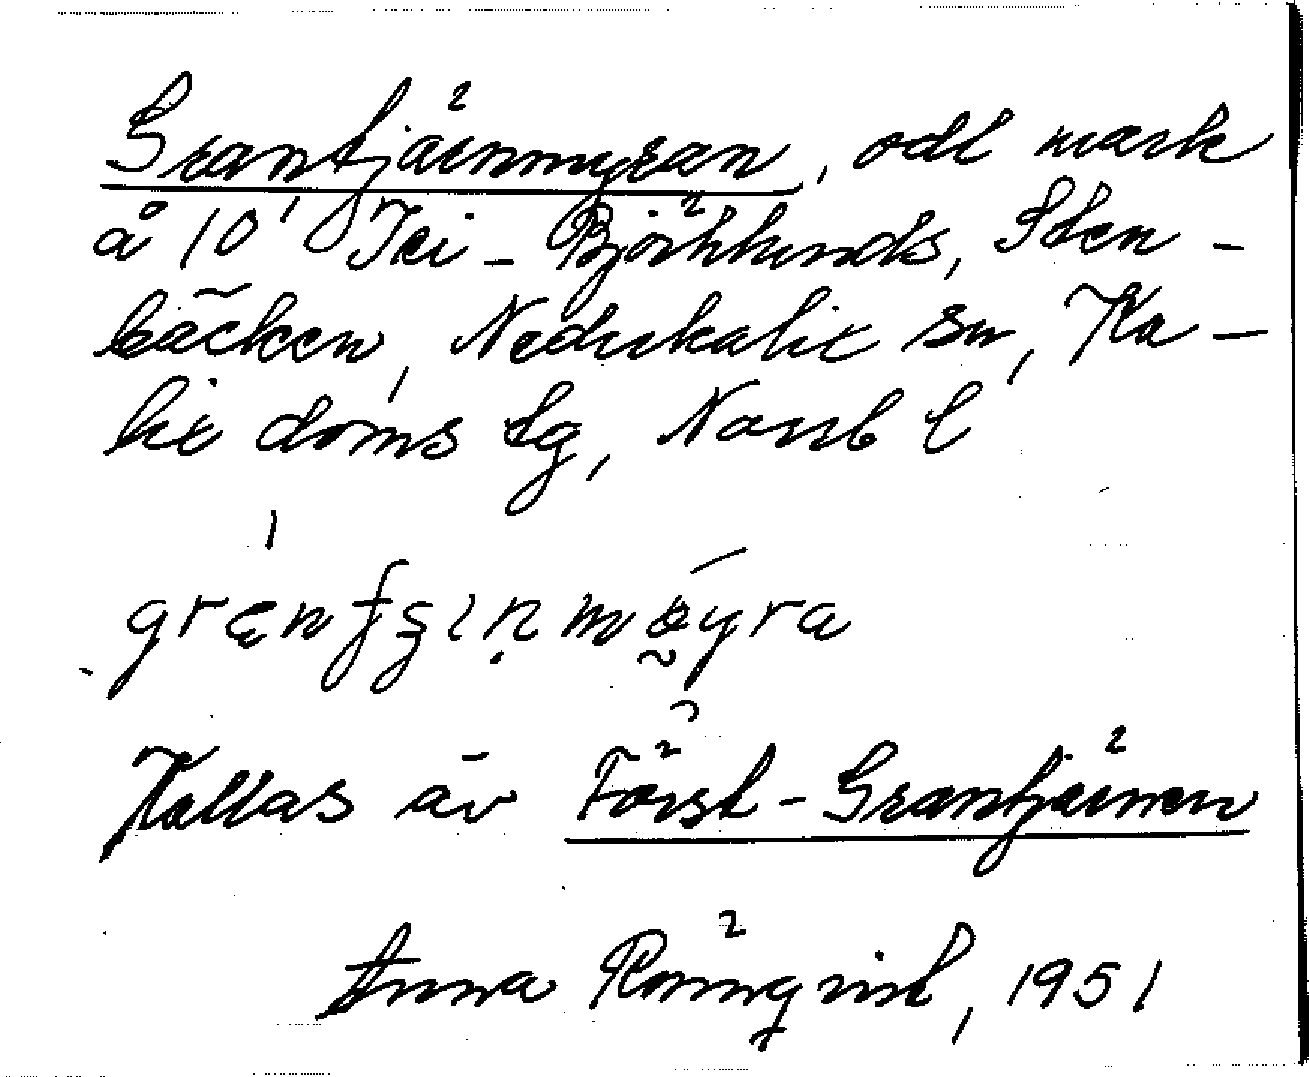 Grantjärnmyran, odl mark
å 10¹ Tri-Björklunds, Sten-
bäcken, Nederkalix sn, Ka-
lix doms lg, Norrb l
Kallas äv Först-Grantjärnen
Anna Rönnqvist, 1951